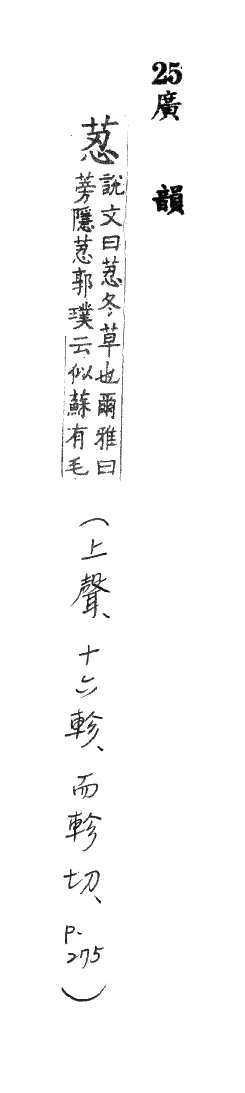 25廣韻
荵
說文曰荵冬草也爾雅曰
蒡隱荵郭璞云似蘇有毛
(上聲、十六軫、而軫切、p.275)